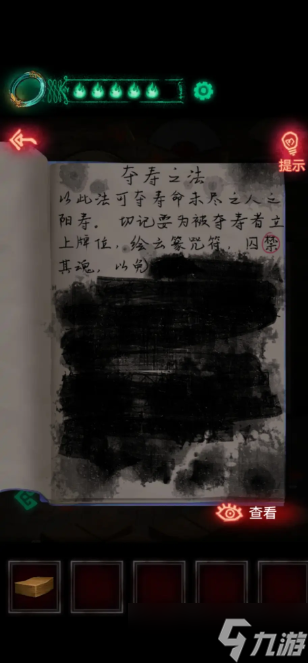 提示
夺寿之法
以此法可夺寿命未尽之人之
阳寿。切记要为被夺寿者立
上牌位，绘云篆咒符，囚禁
其魂，以免
查看
九游